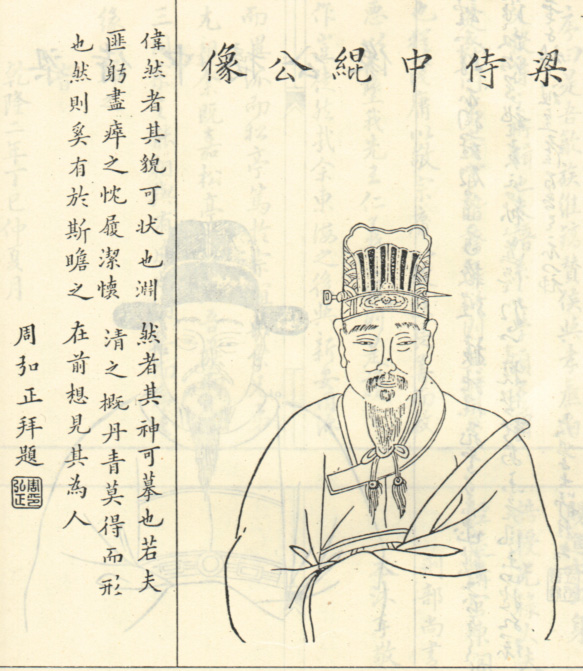 梁侍中緄公像
偉然者其貌可状也淵然者其神可摹也若夫
匪躬盡瘁之忱履潔懷清之概丹青莫得而形
也然則奚有於斯瞻之在前想見其為人
周弘正拜題
周印弘正